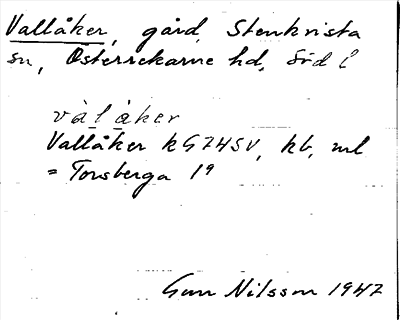 Vallåker, gård, Stenkvista
sn, Österrekarne hd, Södl
vàlåker
Vallåker KG74SV, kb, ml
= Torsberga 1⁹
Gun Nilsson 1947